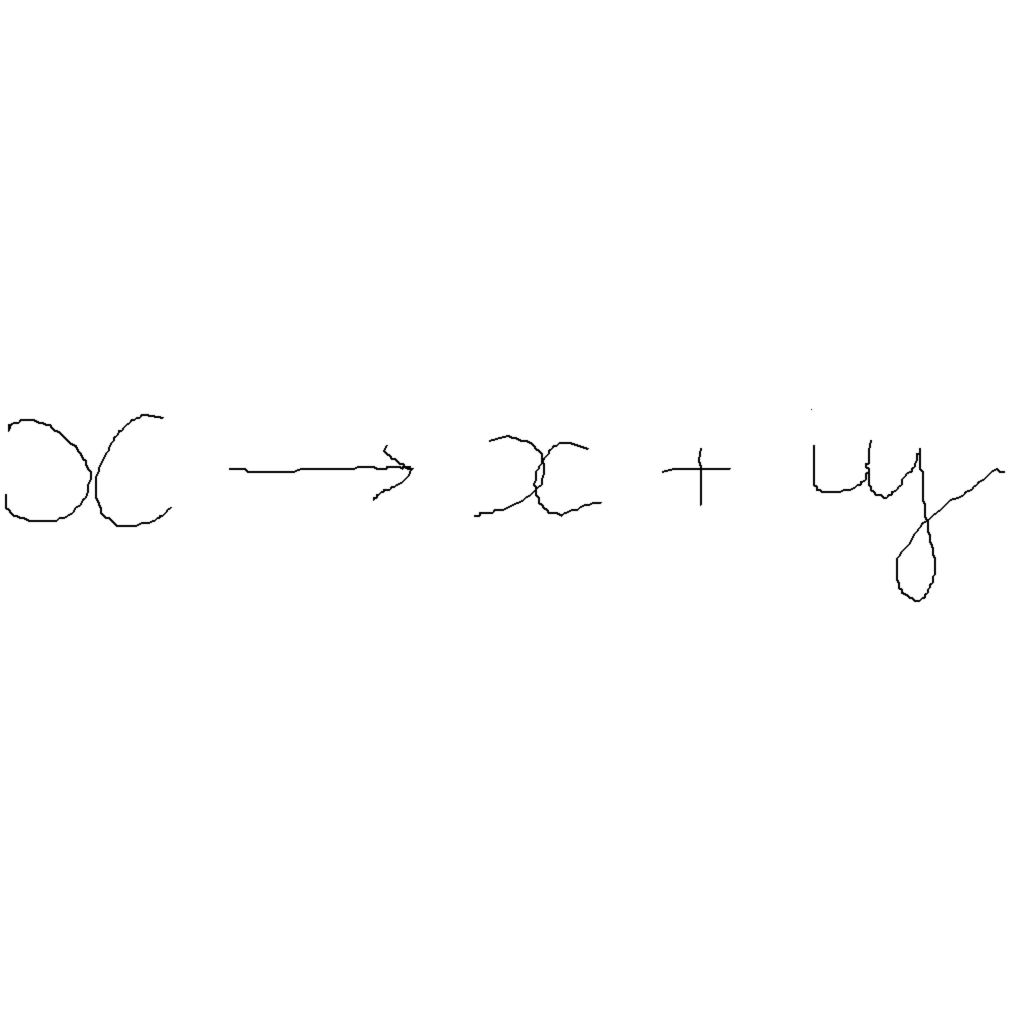 x → x + iy